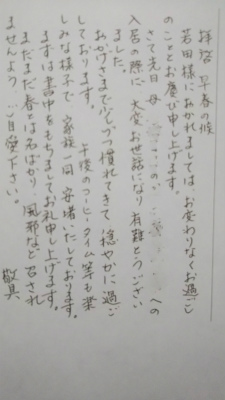 拝啓 早春の候
若田様におかれましては、お変わりなくお過ごし
のこととお慶び申し上げます。
さて先日、母 の への
入居の際に、大変お世話になり有難とうござい
ました。
おかげさまで少しづつ慣れてきて、穏やかに過ご
しております。 午後のコーヒータイム等も楽
しみな様子で、家族一同安堵いたしております。
まずは書中をもちましてお礼申し上げます。
まだまだ春とは名ばかり、風邪など召され
ませんよう、ご自愛下さい。
敬具